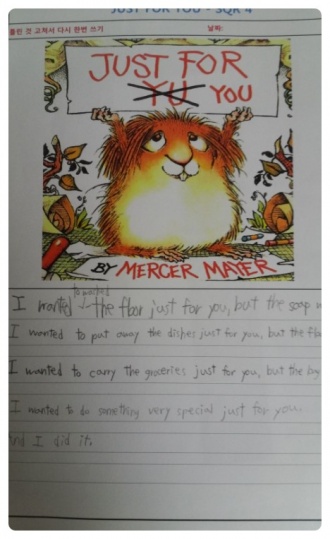 JUST FOR YOU - SQR 4
틀린 것 고쳐서 다시 한번 쓰기 날짜:
JUST FOR
YU YOU
BY MERCER MAYER
to washed
I wanted the floor just for you, but the soap
I wanted to put away the dishes just for you, but the flo
I wanted to carry the groceries just for you, but the bag
I wanted to do something very special just for you.
And I did it.